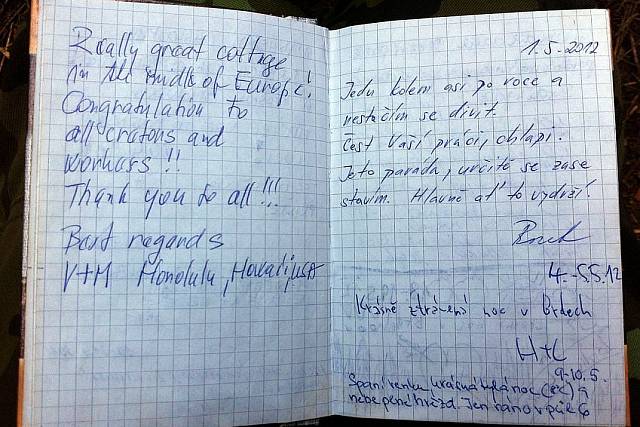 Really great cottage
in the middle of Europe!
Congratulation to
all creators and
workers !!
Thank you to all !!!
Best regards
V+M Honolulu, Hawaii, USA
1.5.2012
Jedu kolem asi po roce a
nestačím se divit.
Čest Vaší práci, chlapi.
Je to paráda, určitě se zase
stavím. Hlavně ať to vydrží!
4.-5.5.12
Krásně strávená noc v Brdech
H+L
9-10.5.
Spaní venku krásná noc
nebe hvězd. Jen ráno